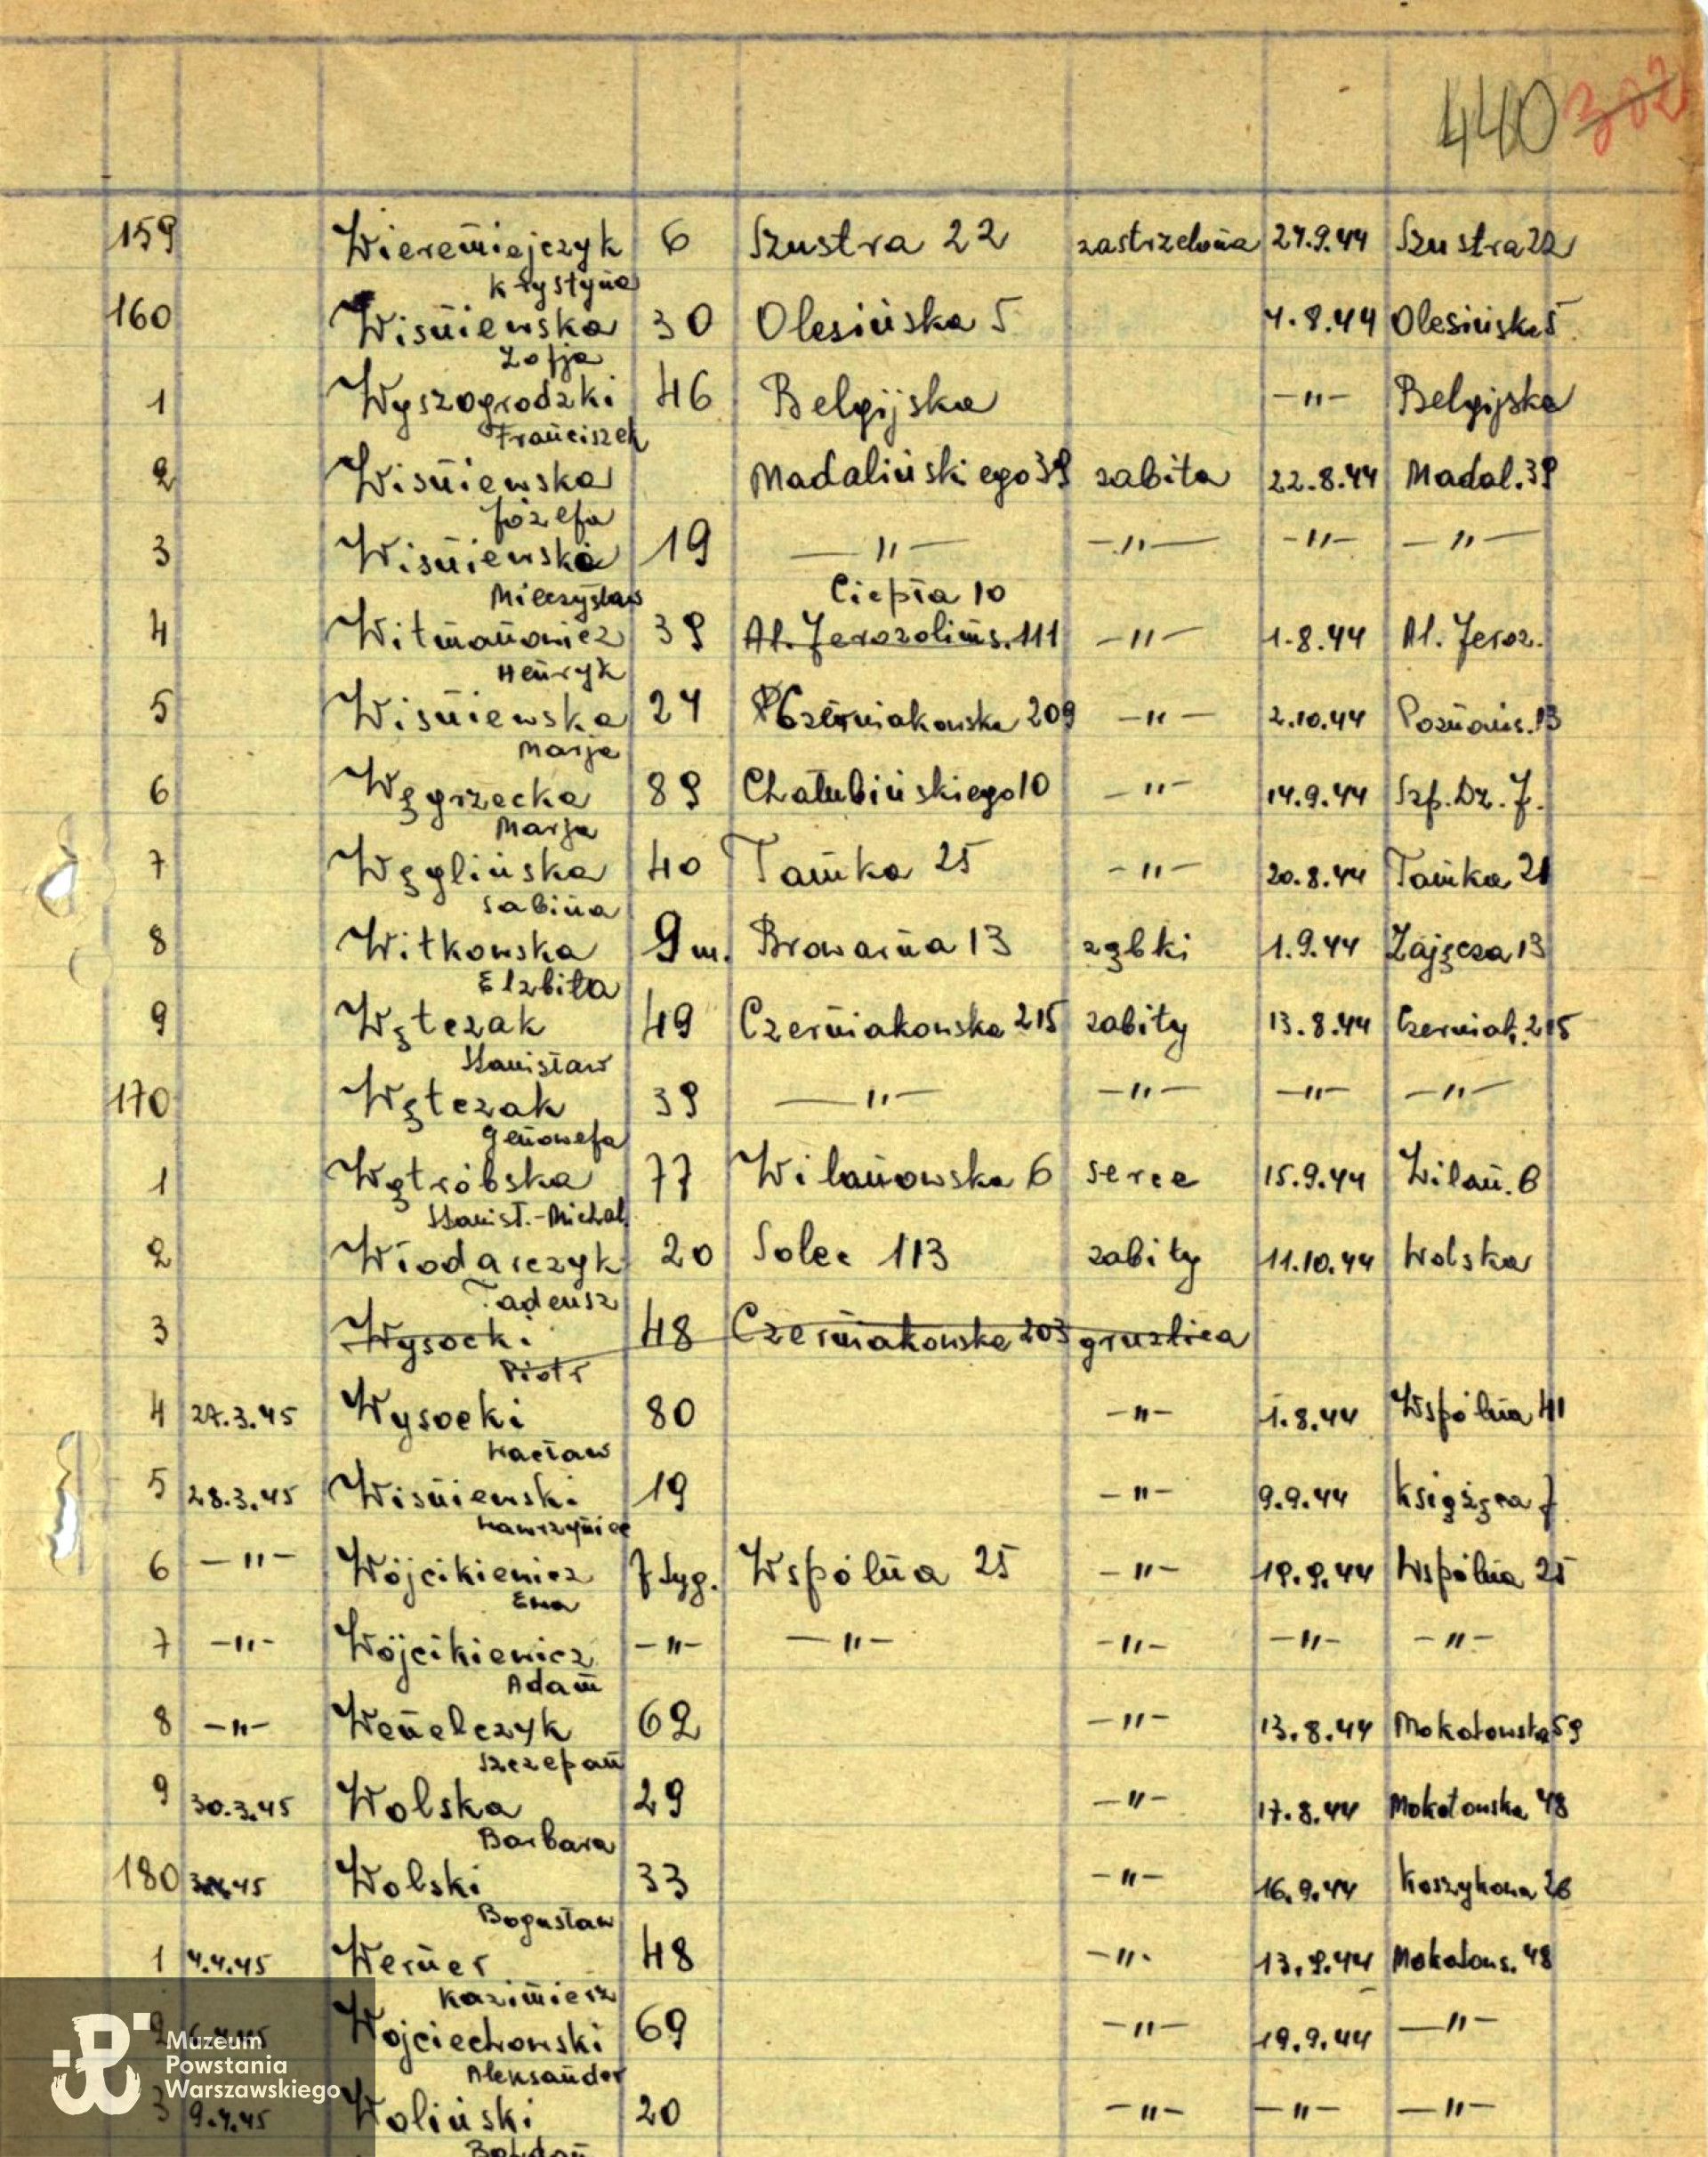 440 302
159 Wieremiejczyk 6 Szustra 22 zastrzelona 27.9.44 Szustra 22
Krystyna
160 Wiśniewska 30 Olesińska 5 4.8.44 Olesińska 5
Zofja
1 Wyszogrodzki 46 Belgijska —"— Belgijska
Franciszek
2 Wiśniewska Madalińskiego 39 zabita 22.8.44 Madal. 39
Józefa
3 Wiśniewski 19 —"— —"— —"— —"—
Mieczysław Ciepła 10
4 Witmanowicz 39 Al. Jerozolims. 111 —"— 1.8.44 Al. Jeroz.
Henryk
5 Wiśniewska 24 Czerniakowska 209 —"— 2.10.44 Poznańs. 13
Marja
6 Węgrzecka 89 Chałubińskiego 10 —"— 14.9.44 Szp. Dz. J.
Marja
7 Węglińska 40 Tamka 25 —"— 20.8.44 Tamka 21
Sabina
8 Witkowska 9 m. Browarna 13 ząbki 1.9.44 Zajęcza 13
Elżbita
9 Wątczak 49 Czerniakowska 215 zabity 13.8.44 Czerniak. 215
Stanisław
170 Wątczak 39 —"— —"— —"— —"—
Genowefa
1 Wątróbska 77 Wilanowska 6 serce 15.9.44 Wilan. 6
Stanisł.-Michał
2 Włodarczyk 20 Solec 113 zabity 11.10.44 Wolska
Tadeusz
3 Wysocki 48 Czerniakowska 203 gruźlica
Piotr
4 27.3.45 Wysocki 80 —"— 1.8.44 Wspólna 41
Wacław
5 28.3.45 Wiśniewski 19 —"— 9.9.44 Książęca 7
Wawrzyniec
6 —"— Wójcikiewicz 7 tyg. Wspólna 25 —"— 19.9.44 Wspólna 25
Ewa
7 —"— Wójcikiewicz —"— —"— —"— —"— —"—
Adam
8 —"— Wenelczyk 62 —"— 13.8.44 Mokotowska 59
Szczepan
9 30.3.45 Wolska 29 —"— 17.8.44 Mokotowska 48
Barbara
180 Wolski 33 —"— 16.9.44 Koszykowa 26
Bogusław
1 4.4.45 Werner 48 —"— 13.9.44 Mokotows. 48
Kazimierz
2 Wojciechowski 69 —"— 19.9.44 —"—
Aleksander
3 9.4.45 Woliński 20 —"— —"— —"—
Bohdan
Muzeum
Powstania
Warszawskiego